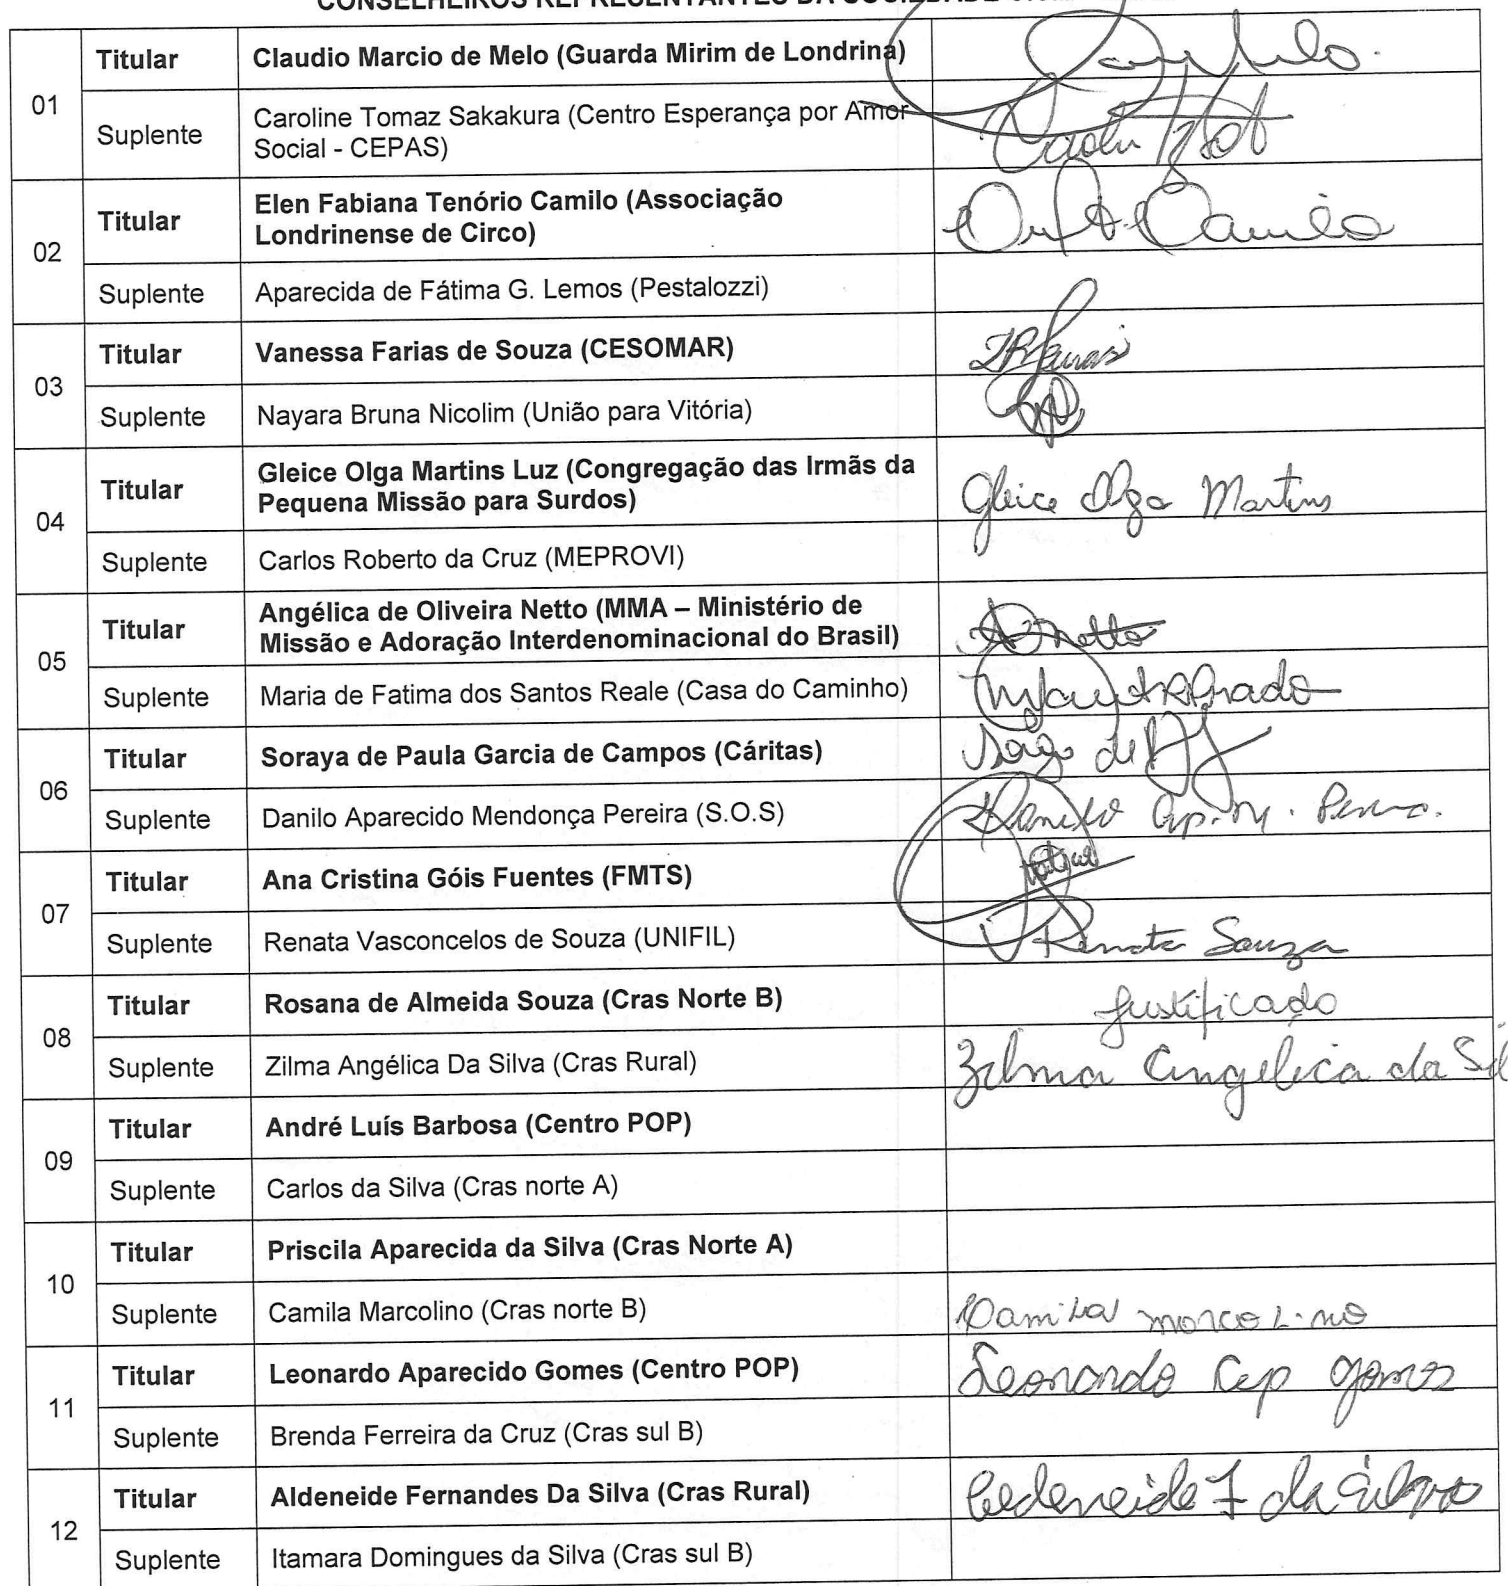 CONSELHEIROS REPRESENTANTES DA SOCIEDADE
01 Titular Claudio Marcio de Melo (Guarda Mirim de Londrina)
Suplente Caroline Tomaz Sakakura (Centro Esperança por Amor
Social - CEPAS)
02 Titular Elen Fabiana Tenório Camilo (Associação
Londrinense de Circo) Camilo
Suplente Aparecida de Fátima G. Lemos (Pestalozzi)
03 Titular Vanessa Farias de Souza (CESOMAR)
Suplente Nayara Bruna Nicolim (União para Vitória)
04 Titular Gleice Olga Martins Luz (Congregação das Irmãs da
Pequena Missão para Surdos) Gleice Olga Martins
Suplente Carlos Roberto da Cruz (MEPROVI)
05 Titular Angélica de Oliveira Netto (MMA – Ministério de
Missão e Adoração Interdenominacional do Brasil) Netto
Suplente Maria de Fatima dos Santos Reale (Casa do Caminho)
06 Titular Soraya de Paula Garcia de Campos (Cáritas)
Suplente Danilo Aparecido Mendonça Pereira (S.O.S) Danilo Ap. M.
07 Titular Ana Cristina Góis Fuentes (FMTS)
Suplente Renata Vasconcelos de Souza (UNIFIL) Renata Souza
08 Titular Rosana de Almeida Souza (Cras Norte B) Justificado
Suplente Zilma Angélica Da Silva (Cras Rural) Zilma Angélica da Sil
09 Titular André Luís Barbosa (Centro POP)
Suplente Carlos da Silva (Cras norte A)
10 Titular Priscila Aparecida da Silva (Cras Norte A)
Suplente Camila Marcolino (Cras norte B) Camila marcolino
11 Titular Leonardo Aparecido Gomes (Centro POP) Leonardo Ap Gomes
Suplente Brenda Ferreira da Cruz (Cras sul B)
12 Titular Aldeneide Fernandes Da Silva (Cras Rural) Aldeneide F da Silva
Suplente Itamara Domingues da Silva (Cras sul B)